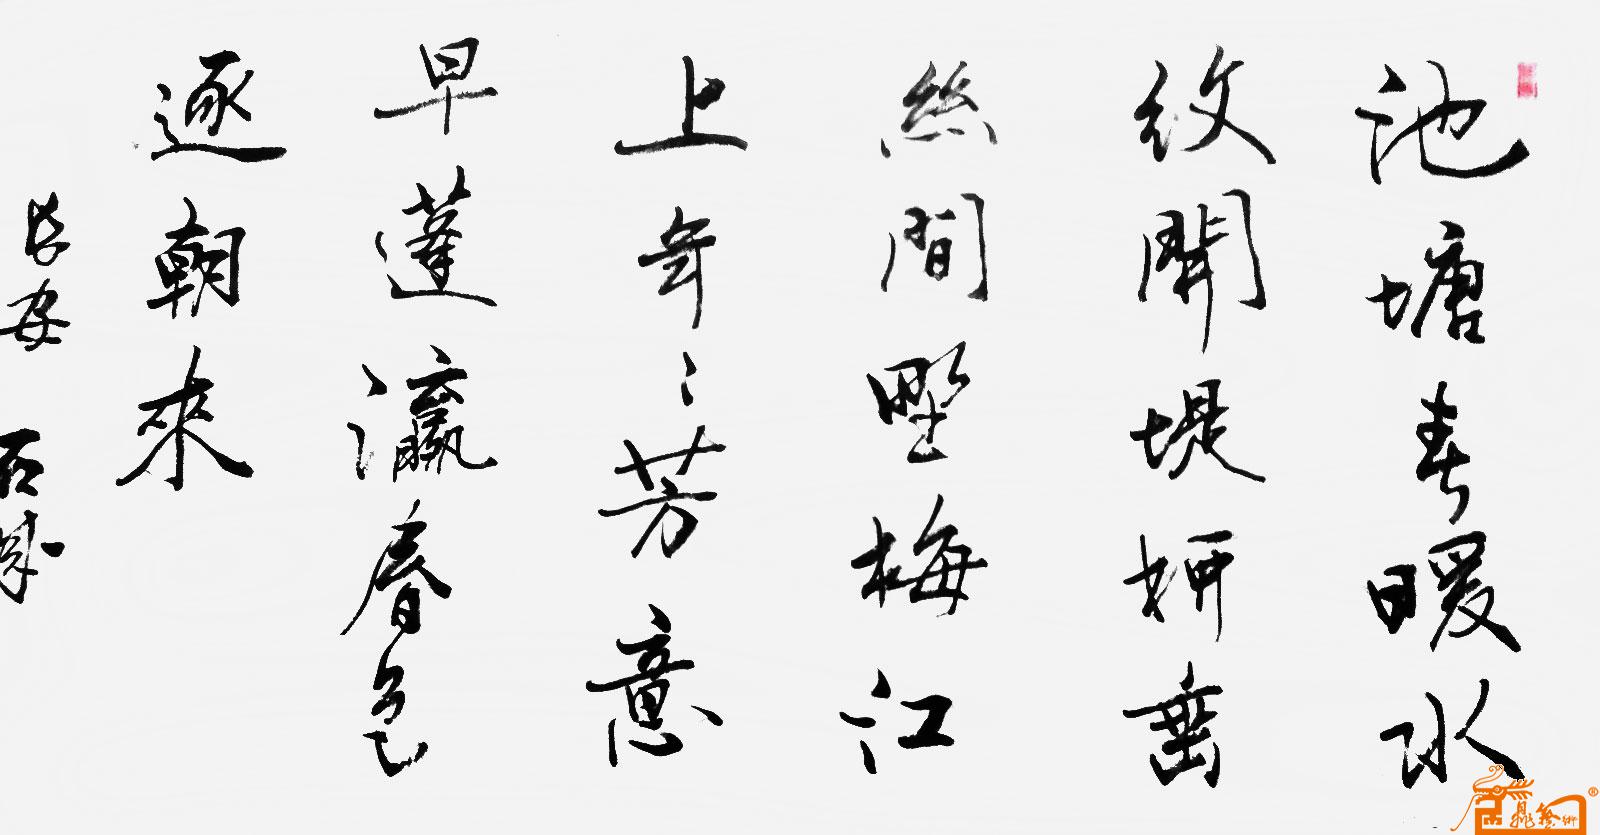 池塘春暖水
紋開堤柳垂
絲間野梅江
上年〻芳意
早蓬瀛春色
逐朝來
長安